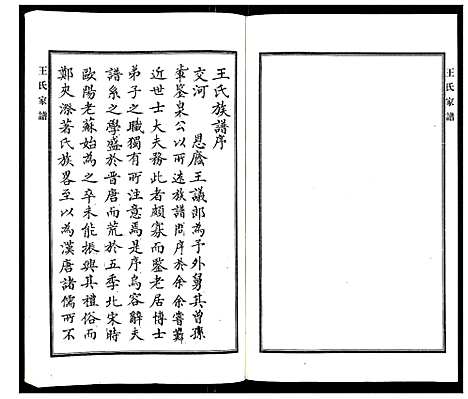 王氏家譜
王氏族譜序
交河 恩廕王議郎為予外舅其曾孫
葦鑒泉公以所迻族譜問序於余余嘗
近世士大夫務此者頗寡而鑒老居博士
弟子之職獨有所注意焉是序烏容辭夫
譜系之學盛於晋唐而荒於五季北宋時
歐陽老蘇始為之卒未能振興其檀俗而
鄭夾漈著氏族畧至以為漢唐諸儒所不
王氏家譜